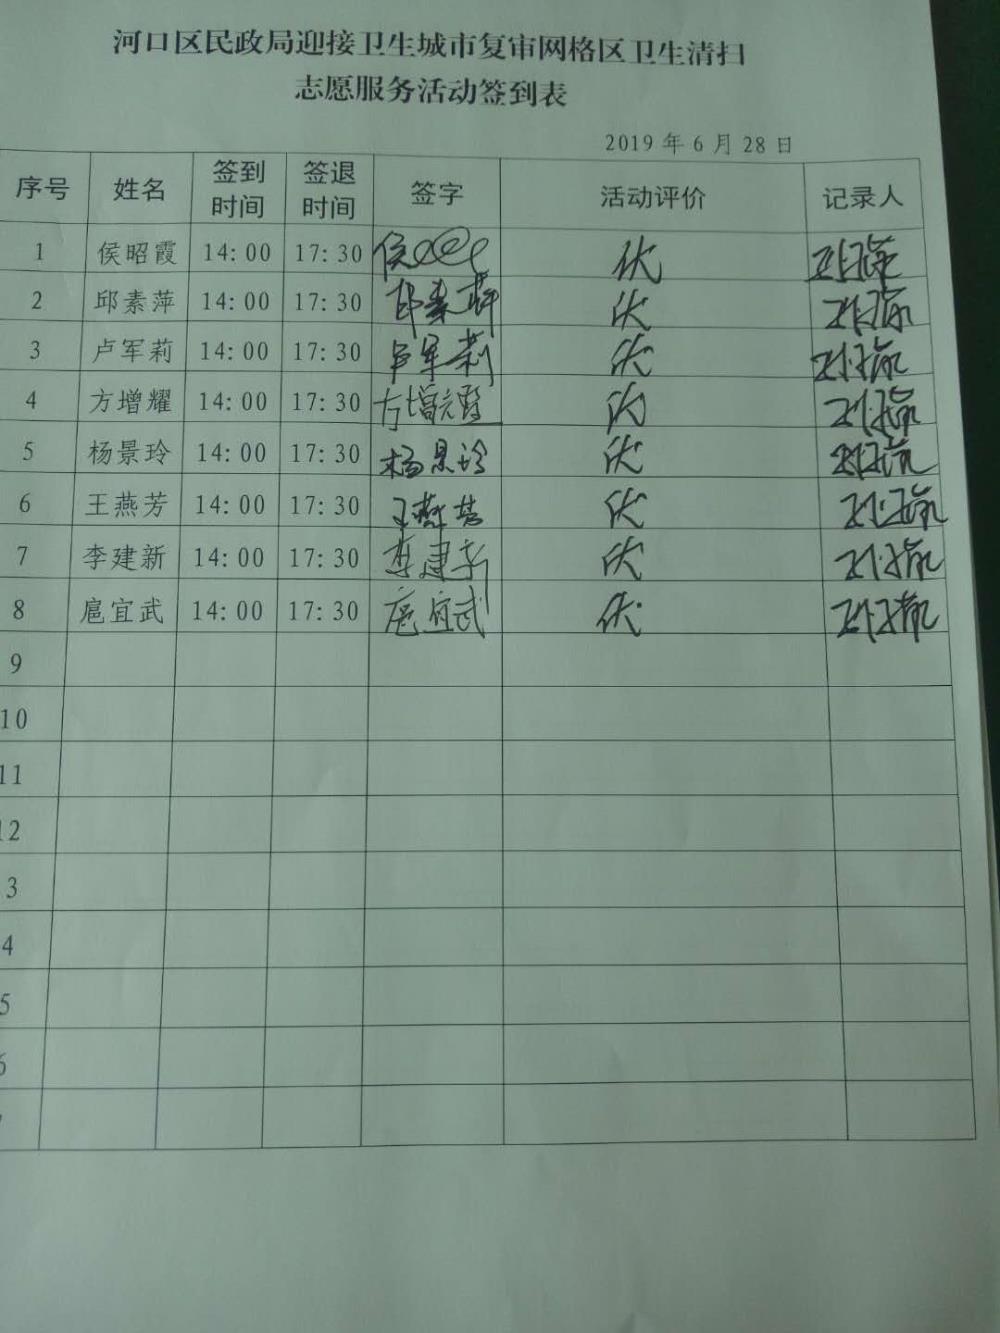 河口区民政局迎接卫生城市复审网格区卫生清扫
志愿服务活动签到表
2019 年 6 月 28 日
序号 姓名 签到时间 签退时间 签字 活动评价 记录人
1 侯昭霞 14:00 17:30 侯
2 邱素萍 14:00 17:30 邱素萍
3 卢军莉 14:00 17:30 卢军莉
4 方增耀 14:00 17:30 方增耀
5 杨景玲 14:00 17:30 杨景玲
6 王燕芳 14:00 17:30 王燕芳
7 李建新 14:00 17:30 李建新
8 扈宜武 14:00 17:30 扈宜武
9
10
11
12
3
4
5
6